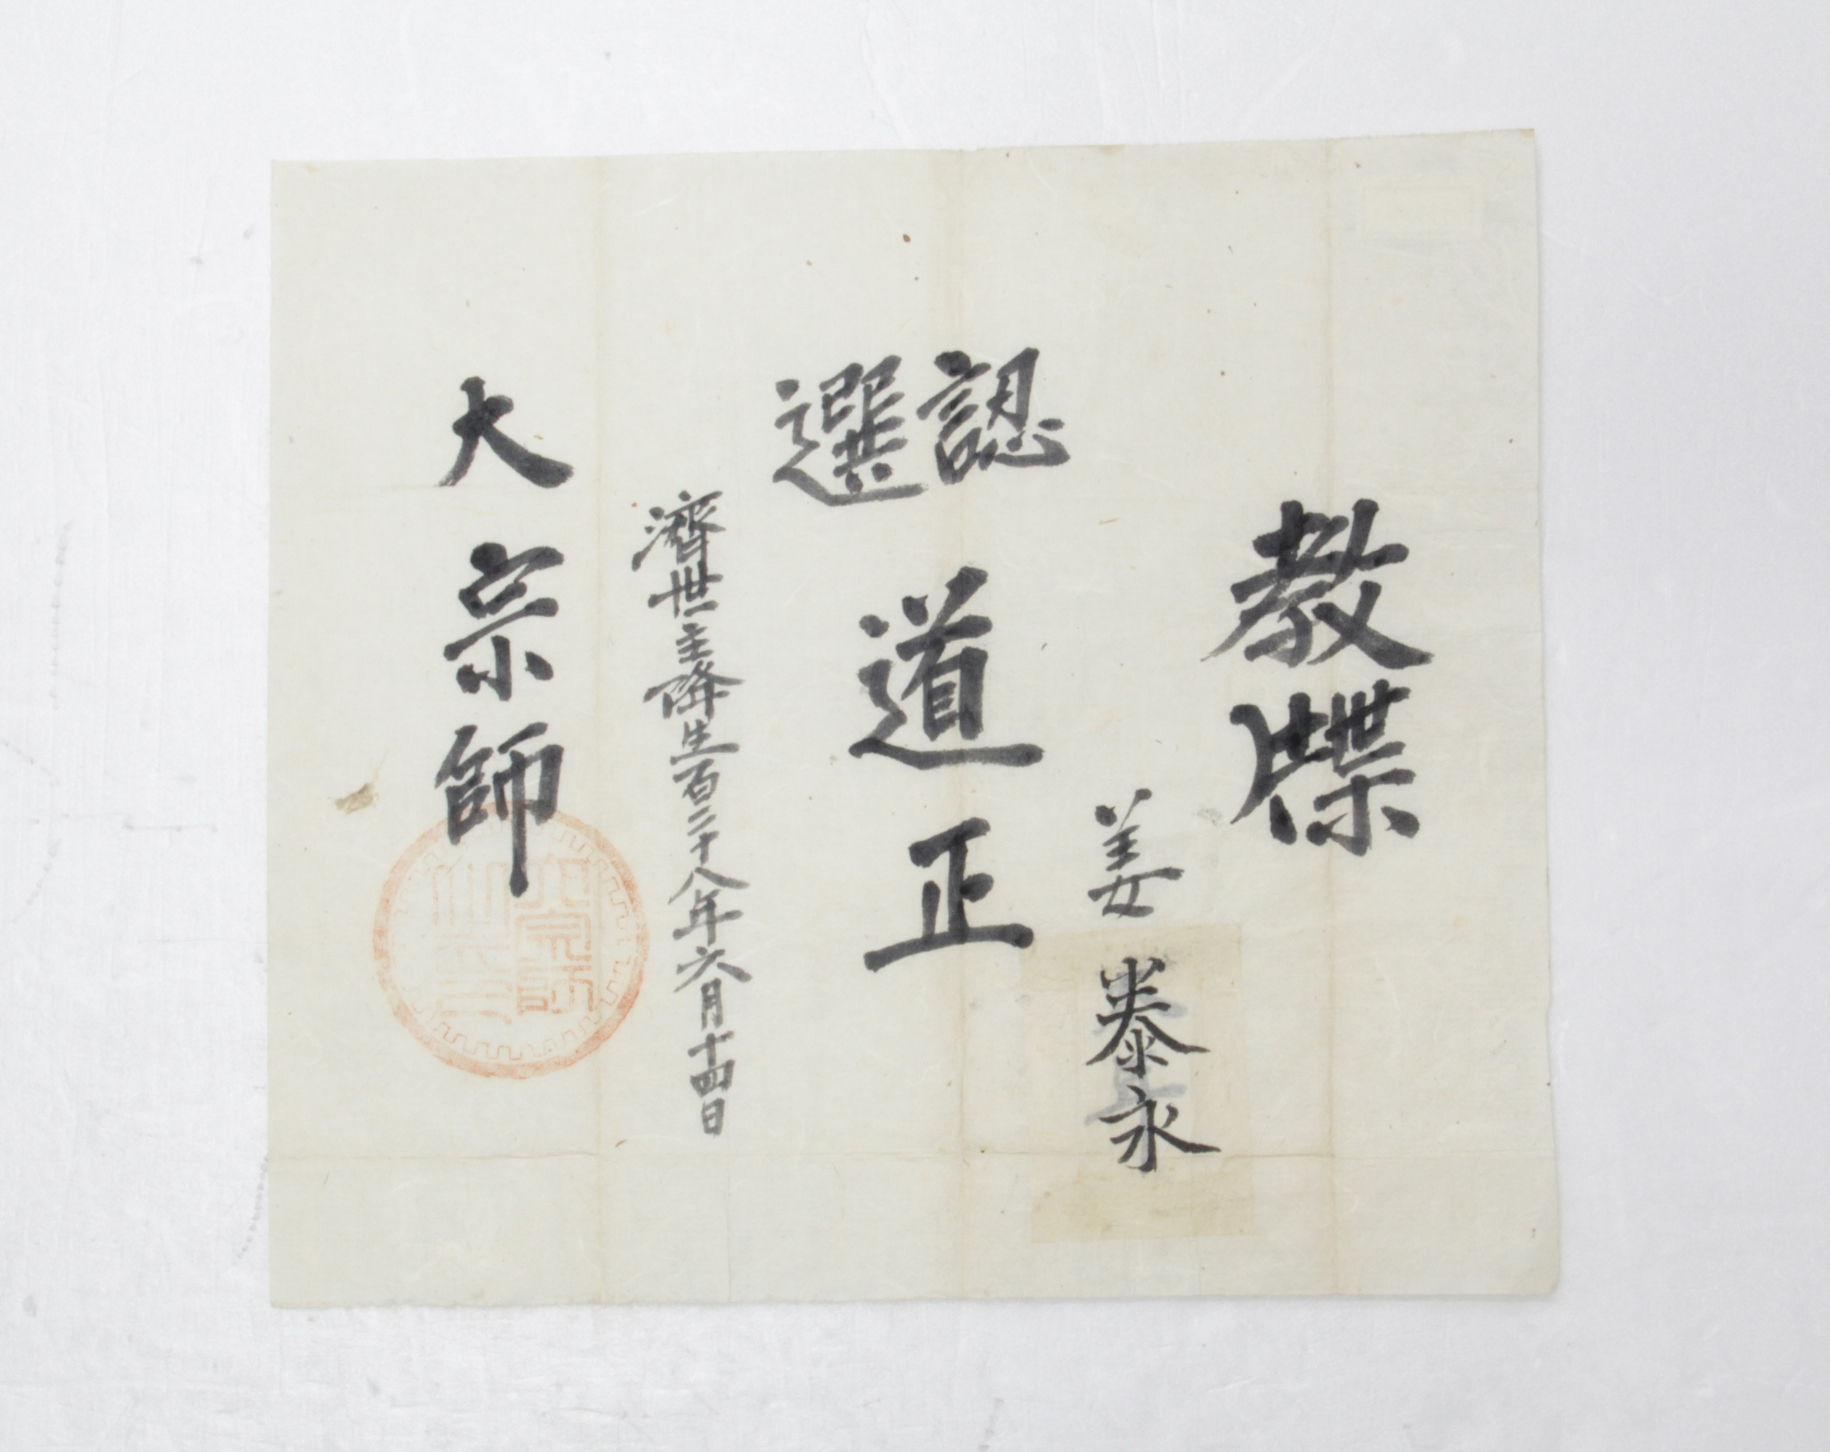 教牒
姜泰永
認選
道正
濟世主降生百二十八年六月十四日
大宗師
大宗師